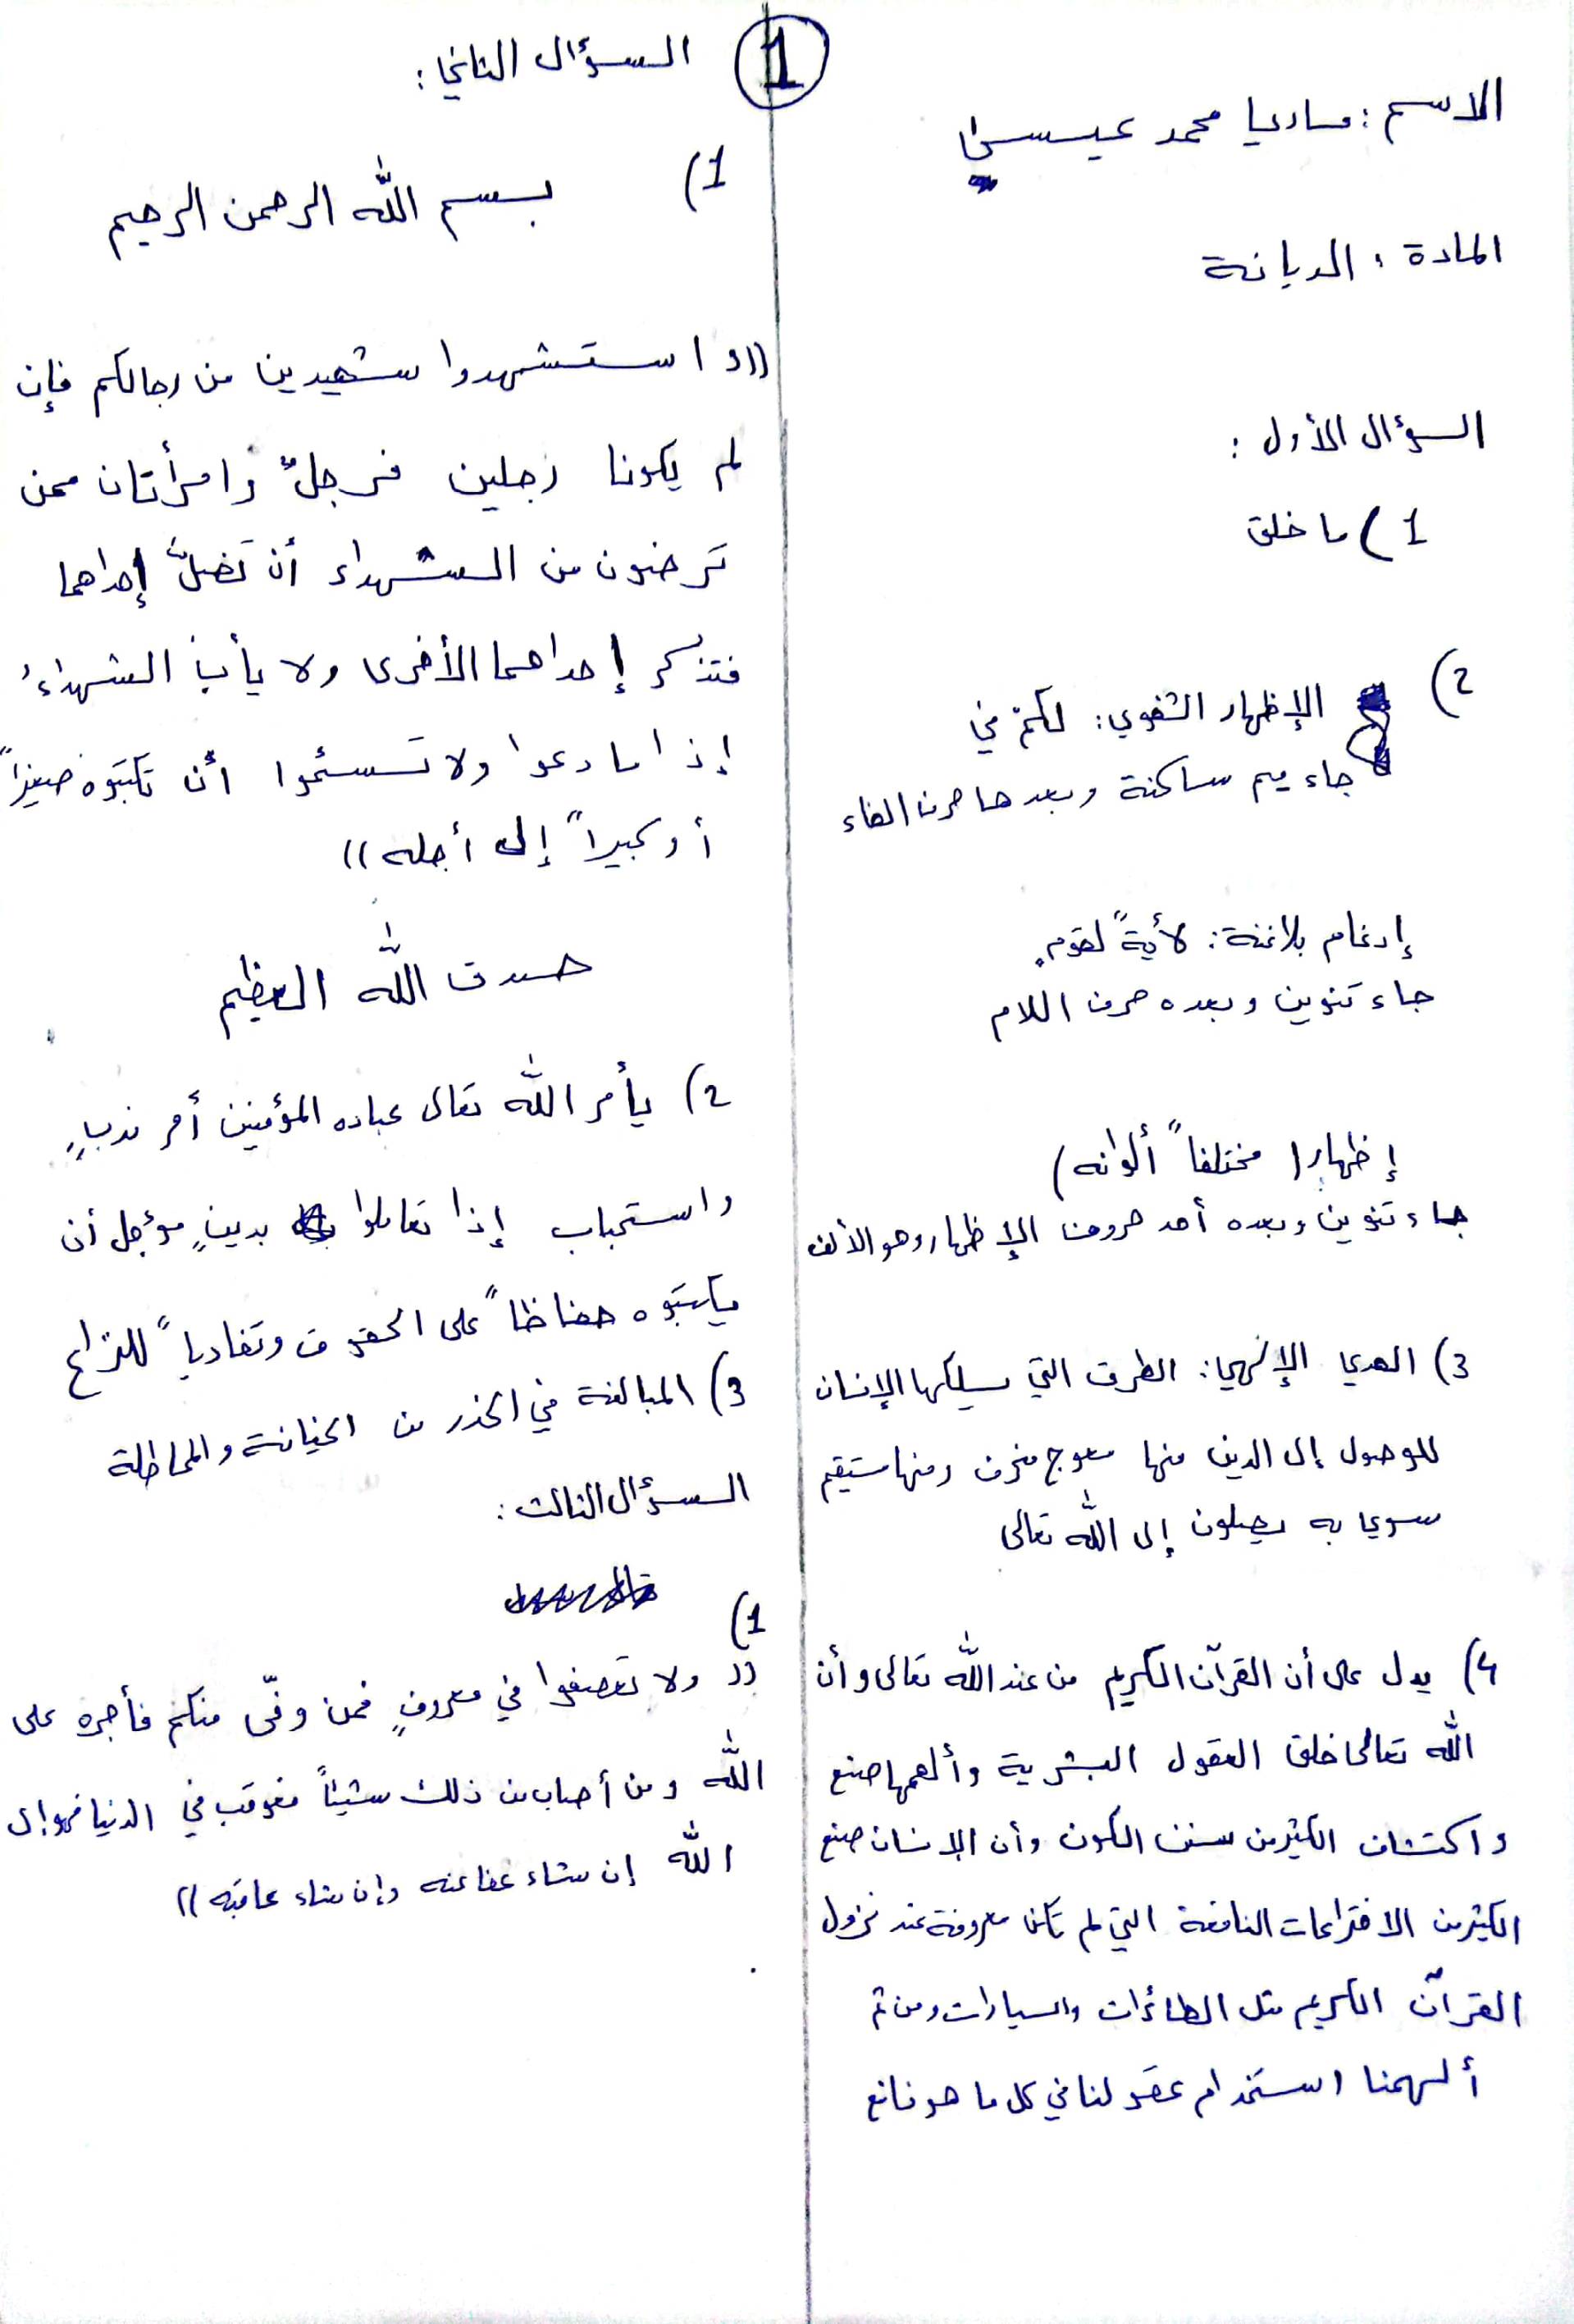 1
الاسم : ماريا محمد عيسى
المادة : الديانة
السؤال الأول :
1) ما خلق
2) الإظهار الشفوي : لكمْ في
جاء ميم ساكنة وبعدها حرف الفاء
إدغام بلاغنة : لأيةً لقوم
جاء تنوين وبعده حرف اللام
إظهار ( مختلفاً ألوانه )
جاء تنوين وبعده أحد حروف الإظهار وهو الألف
3) الهدي الإلهي : الطرق التي يسلكها الإنسان
للوصول إلى الدين منها معوج منحرف ومنها مستقيم
سوي به يصلون إلى الله تعالى
4) يدل على أن القرآن الكريم من عند الله تعالى وأن
الله تعالى خلق العقول البشرية وألهمها صنع
واكتشاف الكثير من سنن الكون وأن الإنسان صنع
الكثير من الاختراعات النافعة التي لم تكن معروفة عند نزول
القرآن الكريم مثل الطائرات والسيارات ومن ثم
ألهمنا استخدام عقولنا في كل ما هو نافع
السؤال الثاني :
1) بسم الله الرحمن الرحيم
((واستشهدوا شهيدين من رجالكم فإن
لم يكونا رجلين فرجلٌ وامرأتان ممن
ترضون من الشهداء أن تَضلَّ إحداهما
فتذكر إحداهما الأخرى ولا يأبَ الشهداءُ
إذا ما دعوا ولا تسئموا أن تكتبوه صغيراً
أو كبيراً إلى أجله ))
صدق الله العظيم
2) يأمر الله تعالى عباده المؤمنين أمر ندبٍ
واستحباب إذا تعاملوا بدينٍ مؤجل أن
يكتبوه حفاظاً على الحقوق وتفادياً للنزاع
3) المبالغة في الحذر من الخيانة والمماطلة
السؤال الثالث :
1)
(( ولا تعصوا في معروفٍ فمن وفّى منكم فأجره على
الله ومن أصاب من ذلك شيئاً فعوقب في الدنيا فهو إلى
الله إن شاء عفا عنه وإن شاء عاقبه ))